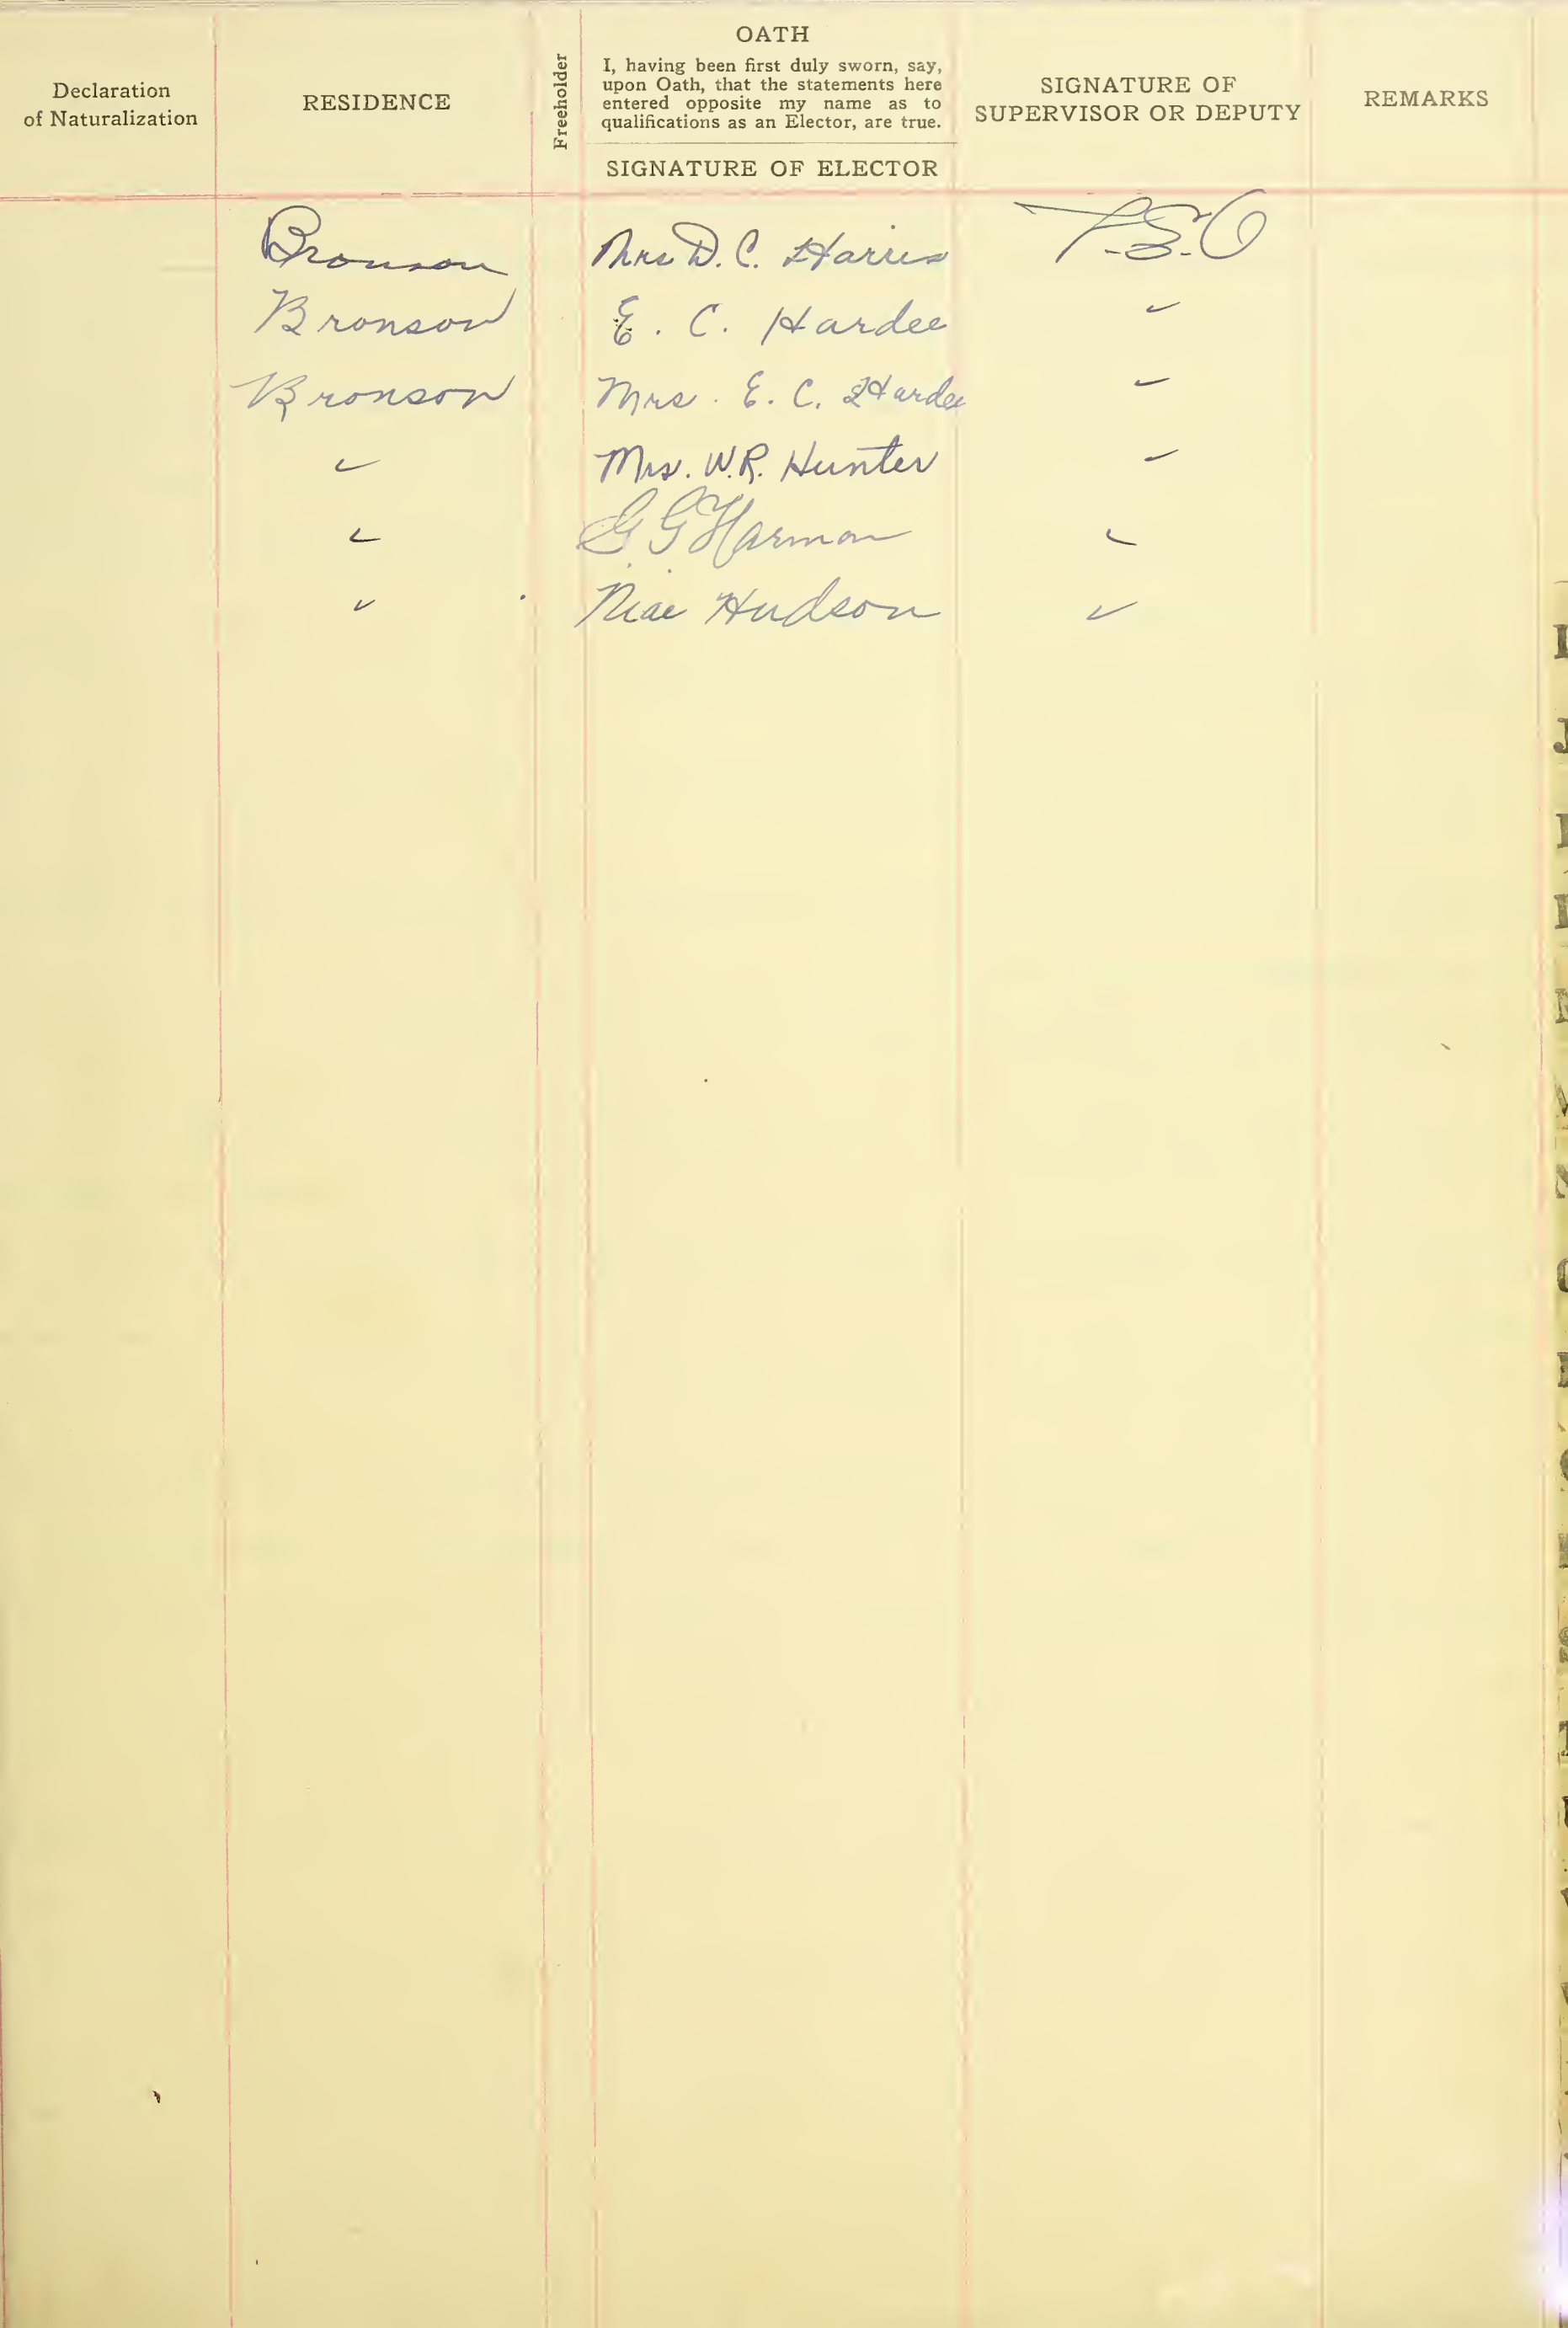 Declaration
of Naturalization
RESIDENCE
Freeholder
OATH
I, having been first duly sworn, say,
upon Oath, that the statements here
entered opposite my name as to
qualifications as an Elector, are true.
SIGNATURE OF ELECTOR
SIGNATURE OF
SUPERVISOR OR DEPUTY
REMARKS
Bronson Mrs D. C. Harris
Bronson E. C. Hardee
Bronson Mrs. E. C. Hardee
Mrs. W.R. Hunter
G G Harmon
Hudson